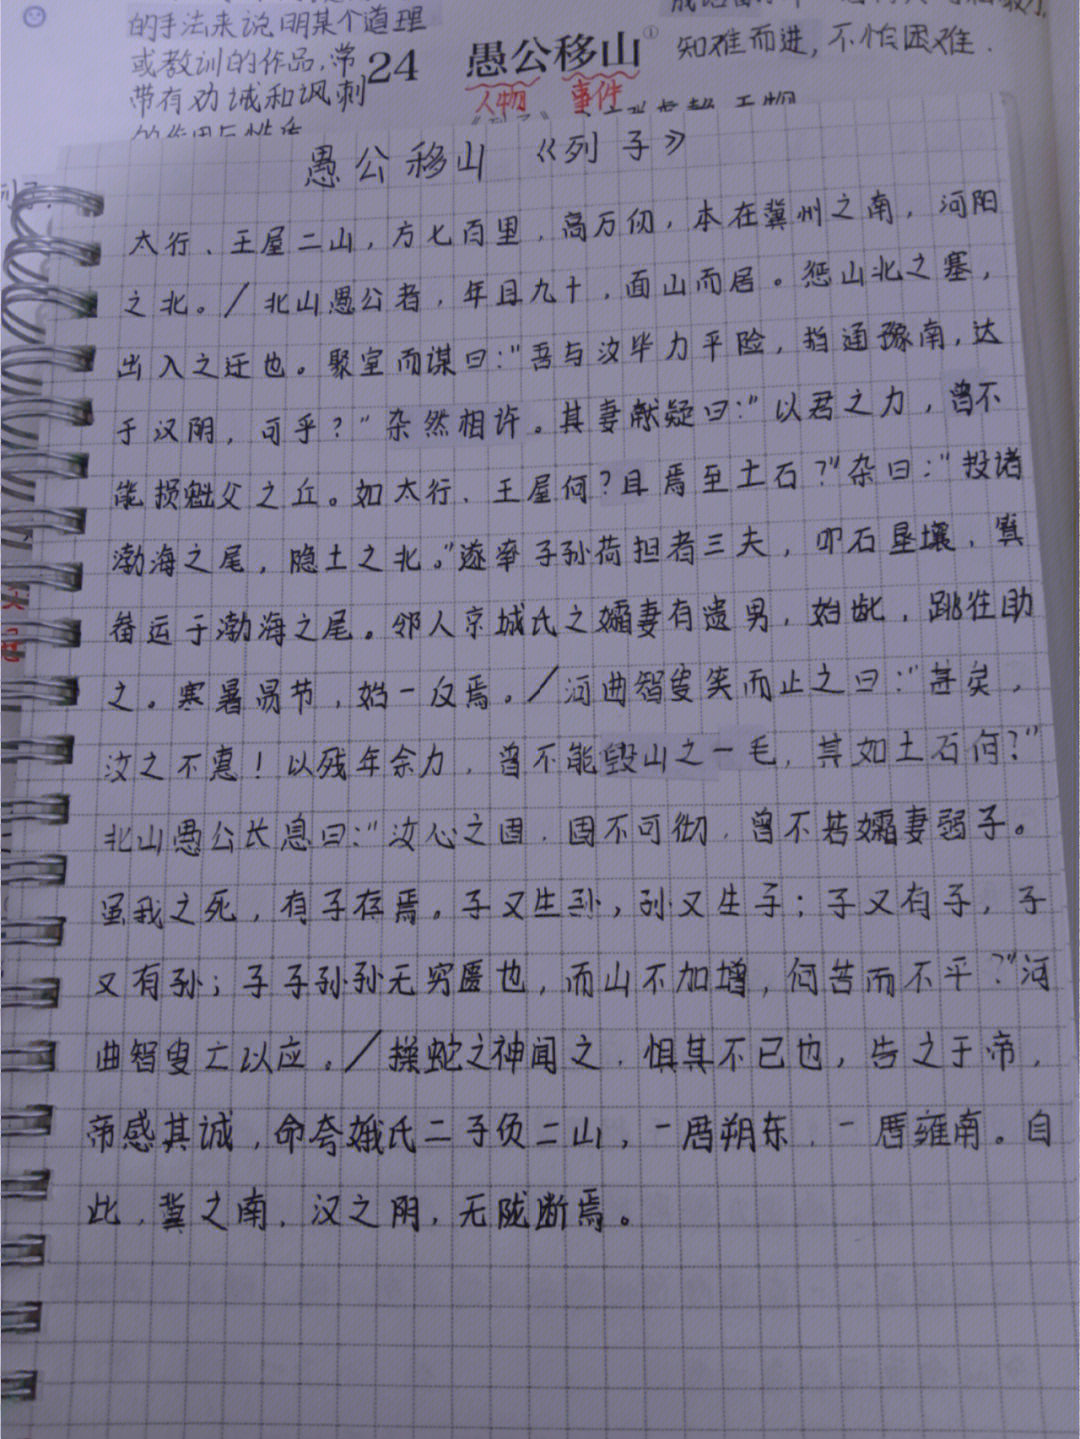 的手法来说明某个道理
或教训的作品,常
带有劝诫和讽刺
知难而进,不怕困难.
24 愚公移山①
人物 事件
愚公移山 《列子》
太行、王屋二山,方七百里,高万仞,本在冀州之南,河阳
之北。/北山愚公者,年且九十,面山而居。惩山北之塞,
出入之迂也。聚室而谋曰:"吾与汝毕力平险,指通豫南,达
于汉阴,可乎?"杂然相许。其妻献疑曰:"以君之力,曾不
能损魁父之丘。如太行、王屋何?且焉至土石?"杂曰:"投诸
渤海之尾,隐土之北。"遂率子孙荷担者三夫,叩石垦壤,箕
畚运于渤海之尾。邻人京城氏之孀妻有遗男,始龀,跳往助
之。寒暑易节,始一反焉。/河曲智叟笑而止之曰:"甚矣,
汝之不惠!以残年余力,曾不能毁山之一毛,其如土石何?"
北山愚公长息曰:"汝心之固,固不可彻,曾不若孀妻弱子。
虽我之死,有子存焉。子又生孙,孙又生子;子又有子,子
又有孙;子子孙孙无穷匮也,而山不加增,何苦而不平?"河
曲智叟亡以应。/操蛇之神闻之,惧其不已也,告之于帝,
帝感其诚,命夸娥氏二子负二山,一厝朔东,一厝雍南。自
此,冀之南,汉之阴,无陇断焉。